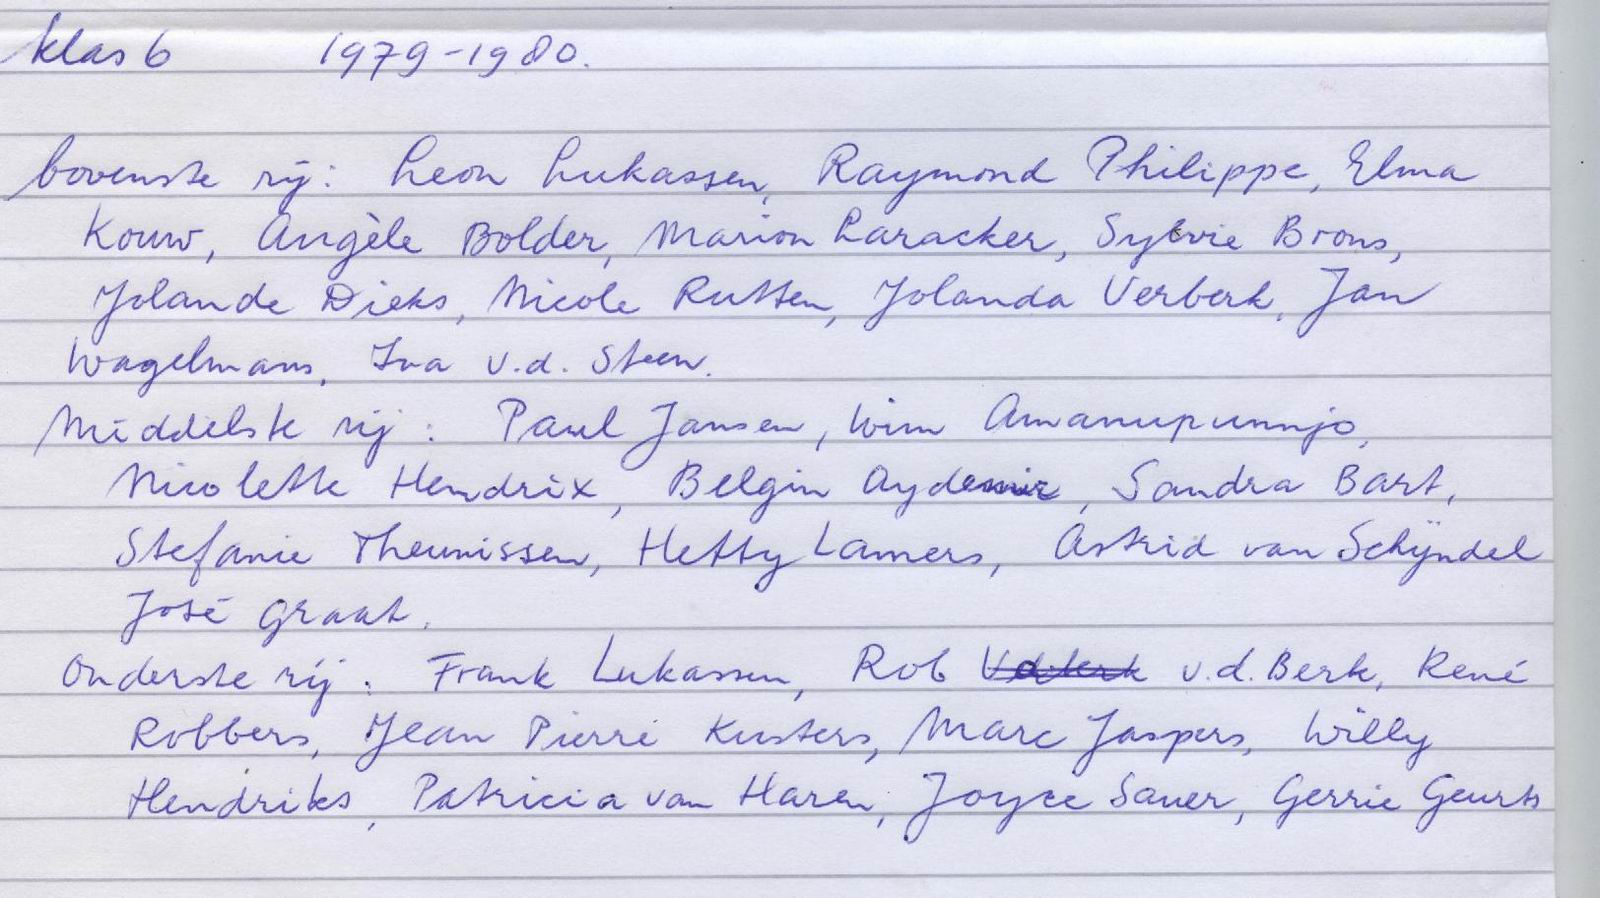 klas 6 1979-1980.
bovenste rij: Leon Lukassen, Raymond Philippe, Elma
Kouw, Angèle Bolder, Marion Laracker, Sylvie Brons,
Jolande Dieks, Nicole Rutten, Jolanda Verberk, Jan
Wagelmans, Iva v.d. Steen.
Middelste rij: Paul Jansen, Wim Amanupunnjo,
Nicolette Hendrix, Belgin Aydemir, Sandra Bart,
Stefanie Theunissen, Hetty Lamers, Astrid van Schijndel
José Graat.
Onderste rij: Frank Lukassen, Rob v.d. Berk, René
Robbers, Jean Pierre Kusters, Marc Jaspers, Willy
Hendriks, Patricia van Haren, Joyce Sauer, Gerrie Geurts